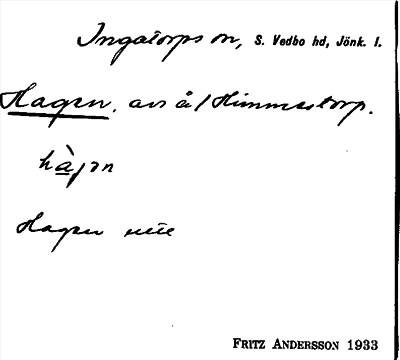 Ingatorps sn, S. Vedbo hd, Jönk. l.
Hagen, avs å / Himmestorp.
hàgən
Hagen
FRITZ ANDERSSON 1933